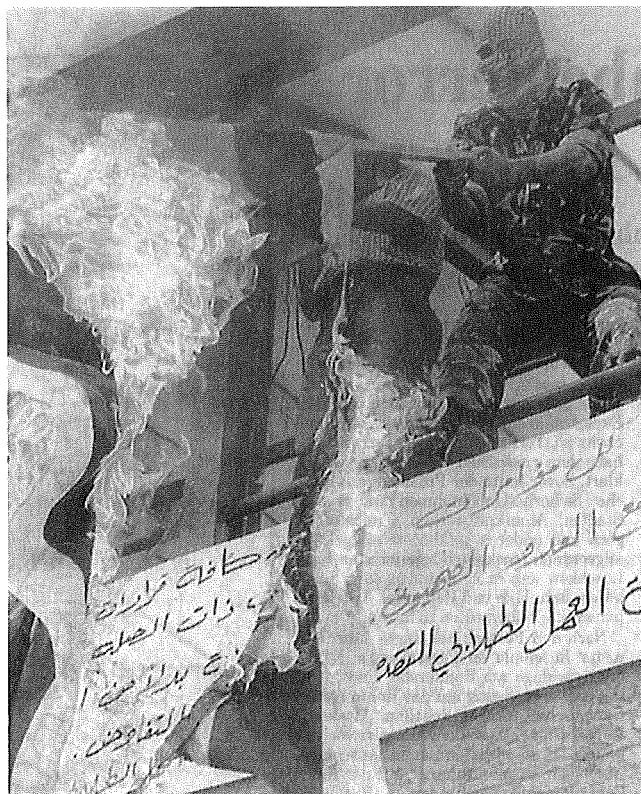 لكل مؤامرات
مع العدو الصهيوني.
العمل الطلابي التقد
كافة قرارات
ذات الصلة
بدلا من
التفاوض.